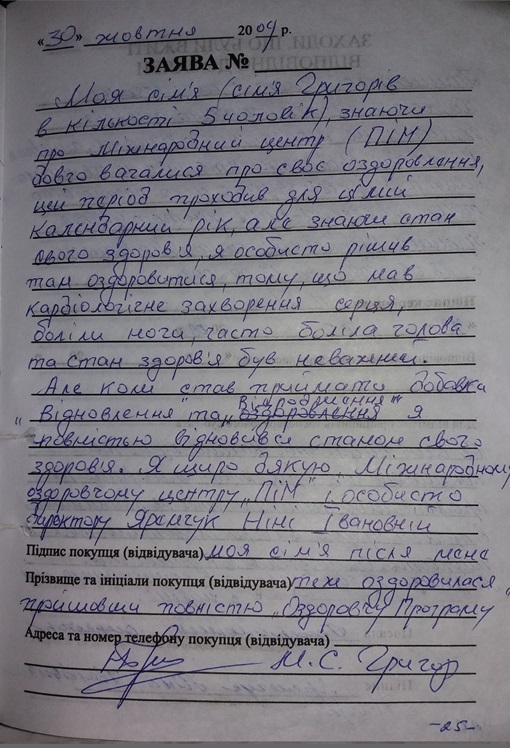 «30» жовтня 2009 р.
ЗАЯВА №
Моя сім'я (сім'я Григорів
в кількості 5 чоловік), знаючи
про Міжнародний центр (ПІМ)
довго вагалися про своє оздоровлення,
цей період проходив для цілий
календарний рік, але знаючи стан
свого здоров'я, я особисто рішив
там оздоровитися, тому, що мав
кардіологічне захворення серця,
боліли нога, часто боліла голова
та стан здоров'я був неважний.
Але коли став приймати добавки
"Відновлення" та "оздоровлення" я
повністю відновився станом свого
здоров'я. Я щиро дякую Міжнародному
оздоровчому центру "ПІМ" і особисто
директору Яремчук Ніні Івановній
Підпис покупця (відвідувача) моя сім'я після мене
Прізвище та ініціали покупця (відвідувача) теж оздоровилася
прийшовши повністю "Оздоровчу Програму"
Адреса та номер телефону покупця (відвідувача)
М. С. Григор
-25-